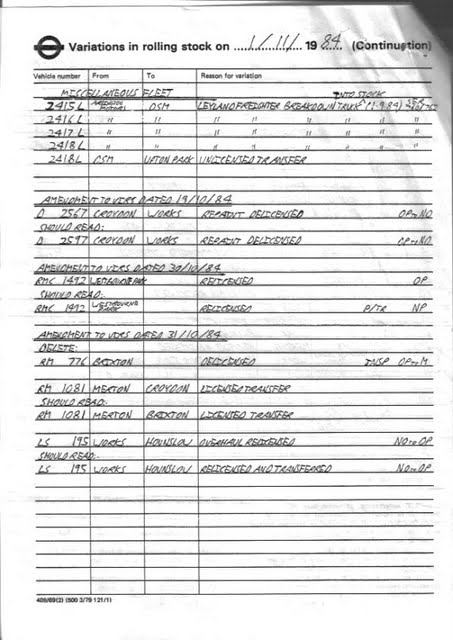 Variations in rolling stock on 1/11/ 19 84. (Continuation)
Vehicle number From To Reason for variation
MISCELLANEOUS FLEET INTO STOCK
2415L DSM LEYLAND FREIGHTER BREAKDOWN TRUCK (1.9.84)
2416L " " " " " " "
2417L " " " " " " "
2418L " " " " " " "
2418L DSM UPTON PARK UNLICENSED TRANSFER
AMENDMENT TO VIRS DATED 19/10/84
D 2567 CROYDON WORKS REPAINT DELICENSED OP to NO
SHOULD READ:-
D 2597 CROYDON WORKS REPAINT DELICENSED OP to NO
AMENDMENT TO VIRS DATED 30/10/84
RMC 1492 WESTBOURNE PARK RELICENSED OP
SHOULD READ:-
RMC 1492 WESTBOURNE PARK RELICENSED P/TR NP
AMENDMENT TO VIRS DATED 31/10/84
DELETE:-
RM 776 BRIXTON DELICENSED INSP OP to M
RM 1081 MERTON CROYDON LICENSED TRANSFER
SHOULD READ:-
RM 1081 MERTON BRIXTON LICENSED TRANSFER
LS 195 WORKS HOUNSLOW OVERHAUL RELICENSED NO to OP
SHOULD READ:-
LS 195 WORKS HOUNSLOW RELICENSED AND TRANSFERRED NO to OP
(500 3/79 121/1)